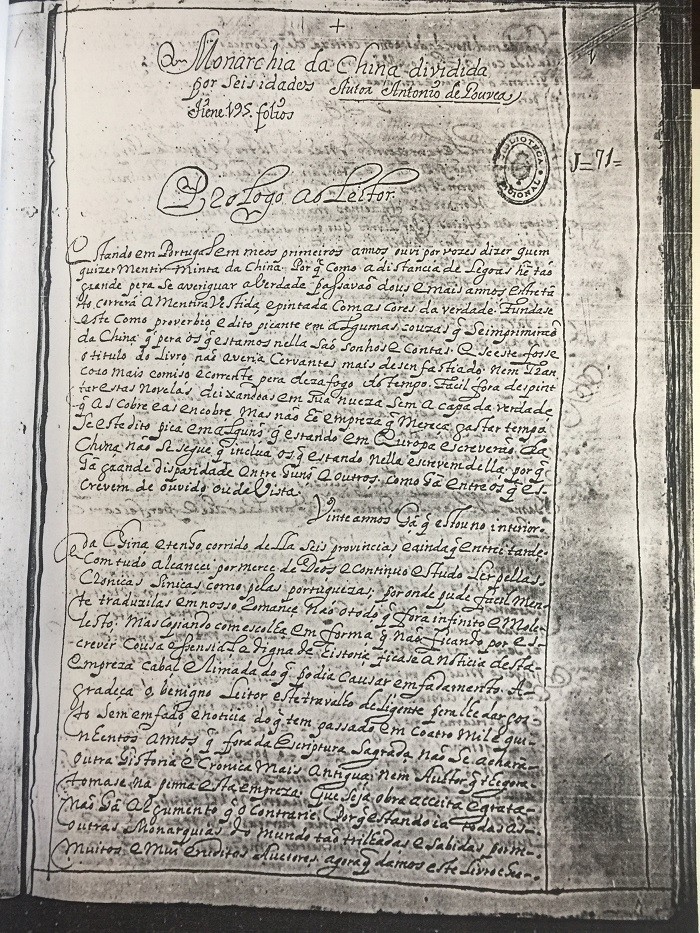 +
Monarchia da China dividida
por seis idades Autor Antonio de Gouvea,
Tiene 195. folios
BIBLIOTECA NACIONAL
J=71=
Prologo ao Leitor.
Estando em Portugal em meos primeiros annos ouvi por vezes dizer quem
quizer Mentir Minta da China. Por q̃ Como a distancia de Legoas hẽ tão
grande pera se averiguar a verdade passavaõ dous e mais annos e entre tã
to, correrá a Mentira Vestida, e pintada Com as Cores da verdade. Fundase
este Como proverbio, e dito picante em algumas couzas q̃ se imprimirão
da China q̃ pera os q̃ estamos nella saõ sonhos e Contas. e se este fosse
o titulo do Livro, naõ averia Cervantes mais desenfastiado, nem Tran
coso mais comiso e corrente pera dezafogo do tempo. Facil fora despin
tar estas Novelas deixandoas em sua nueza sem a capa da verdade,
q̃ as Cobre e as encobre. Mas não he empreza q̃ Mereça gastar tempo.
Se este dito pica em alguns q̃ estando em Europa escreverão da
China não se segue q̃ inclua os q̃ estando nella escrevem della. por q̃
ha grande disparidade entre huns e outros. Como ha entre os q̃ es-
crevem de ouvido, ou de Vista.
Vinte annos ha q̃ estou no interior
da China e tenho corrido della seis provincias e ainda q̃ entrei tarde
Com tudo alcancei por merce de Deos e Continuo estudo Ler pellas
Cronicas Sinicas como pelas portuguezas; por onde pude facilmen-
te traduzilas em nosso Romance não o todo q̃ fora infinito e Mole-
sto. Mas Copiando com escolha em forma q̃ não ficando por es-
crever Cousa essensial e digna de historia ficase a Noticia desta
empreza cabal e Limada do q̃ podia Causar emfadamento. A-
gradeça o benigno Leitor este travalho deligente pera lhe dar gos-
to sem emfado, e noticia do q̃ tem passado em Coatro Mil e qui-
nhentos annos q̃ fora da Escriptura Sagrada não se achará
outra historia e Cronica Mais Antiga: nem Author q̃ te gora
tomase na penna esta empreza. Que seja obra aceita e grata
não ha argumento q̃ o contrarie. Por q̃ estando ia todas as
outras Monarquias do mundo tão trilhadas e sabidas por m-
Muitos e mui eruditos Auctores, agora q̃ damos este Livro che-